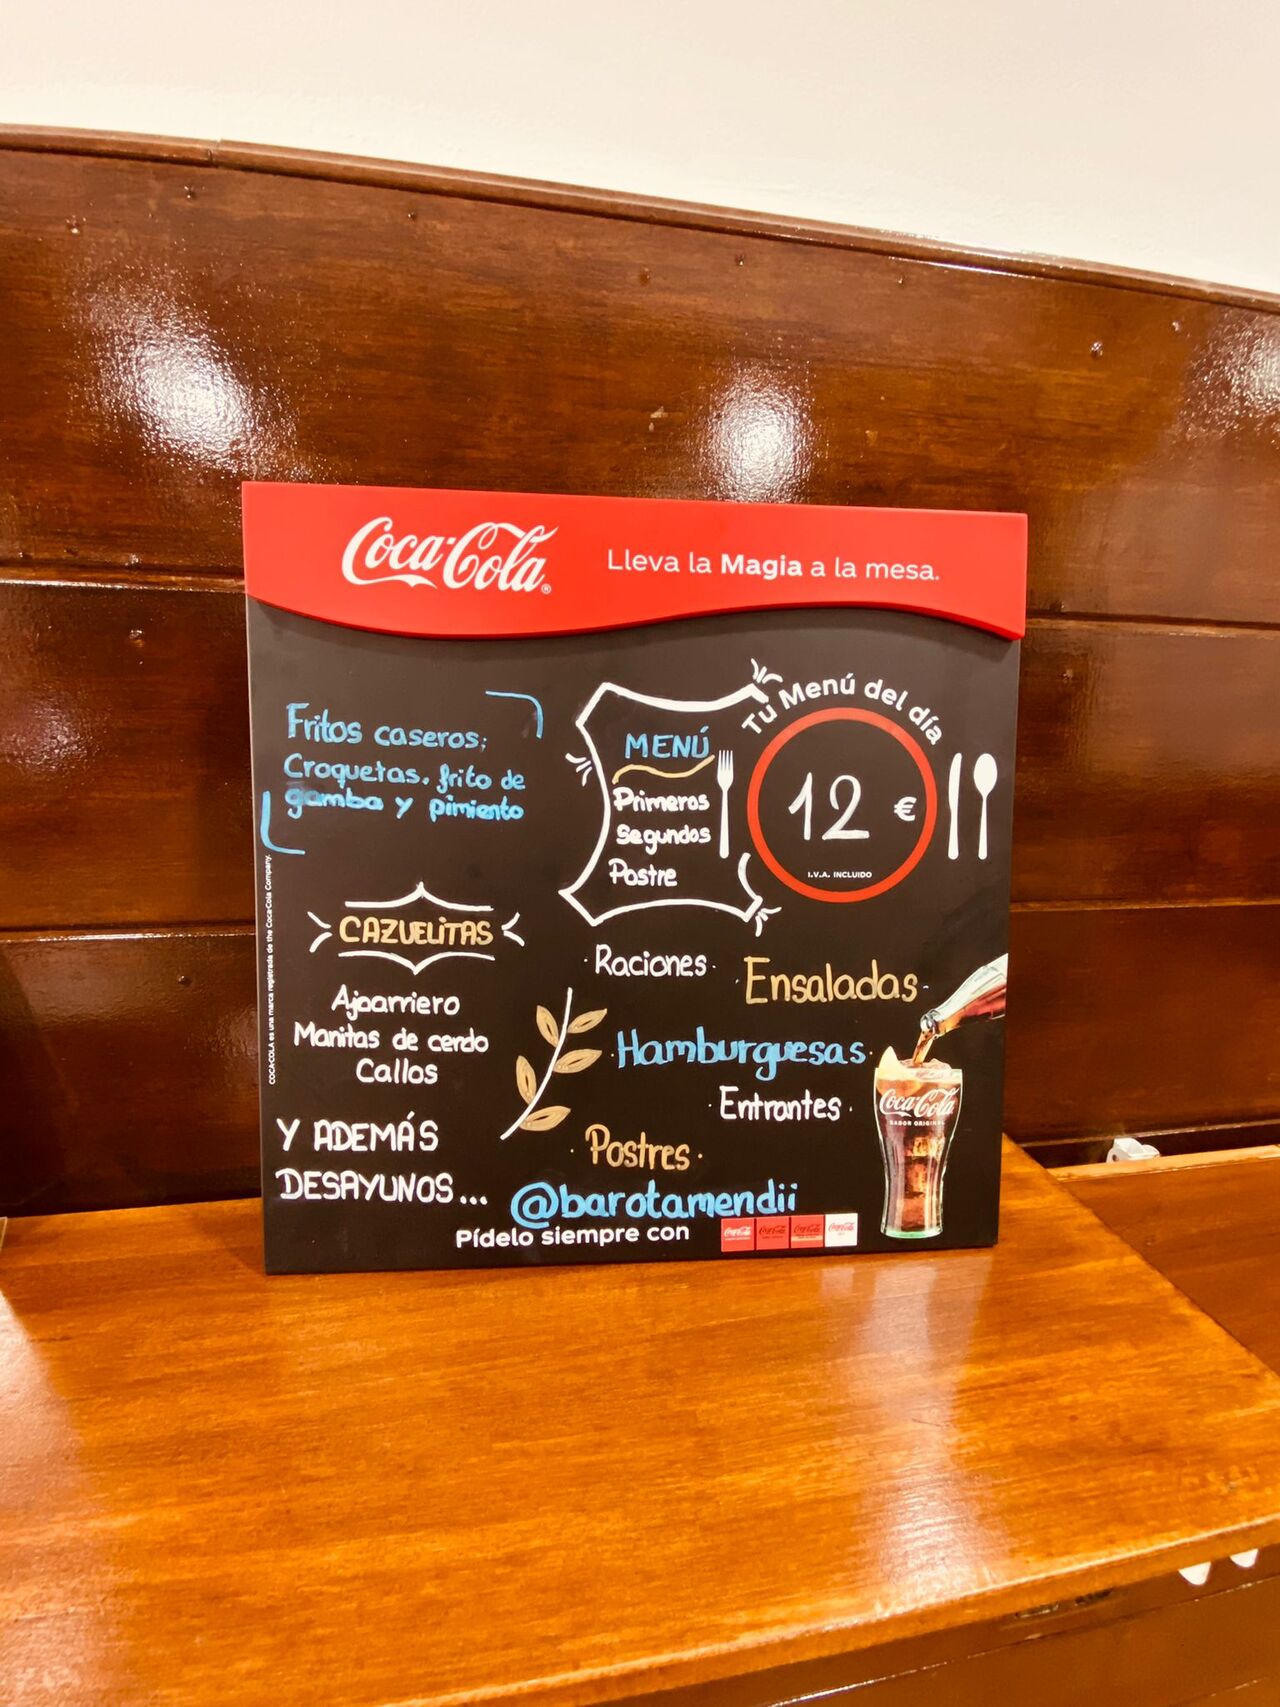 Coca-Cola®
Lleva la Magia a la mesa.
Fritos caseros;
Croquetas, frito de
gamba y pimiento
MENÚ
Primeros
Segundos
Postre
Tu Menú del día
12 €
I.V.A. INCLUIDO
CAZUELITAS
Ajoarriero
Manitas de cerdo
Callos
· Raciones ·
Ensaladas ·
· Hamburguesas ·
· Entrantes ·
· Postres ·
Y ADEMÁS
DESAYUNOS...
@barotamendii
Pídelo siempre con
Coca-Cola
Coca-Cola
Coca-Cola
Coca-Cola
Coca-Cola
SABOR ORIGINAL
COCA-COLA es una marca registrada de the Coca-Cola Company.